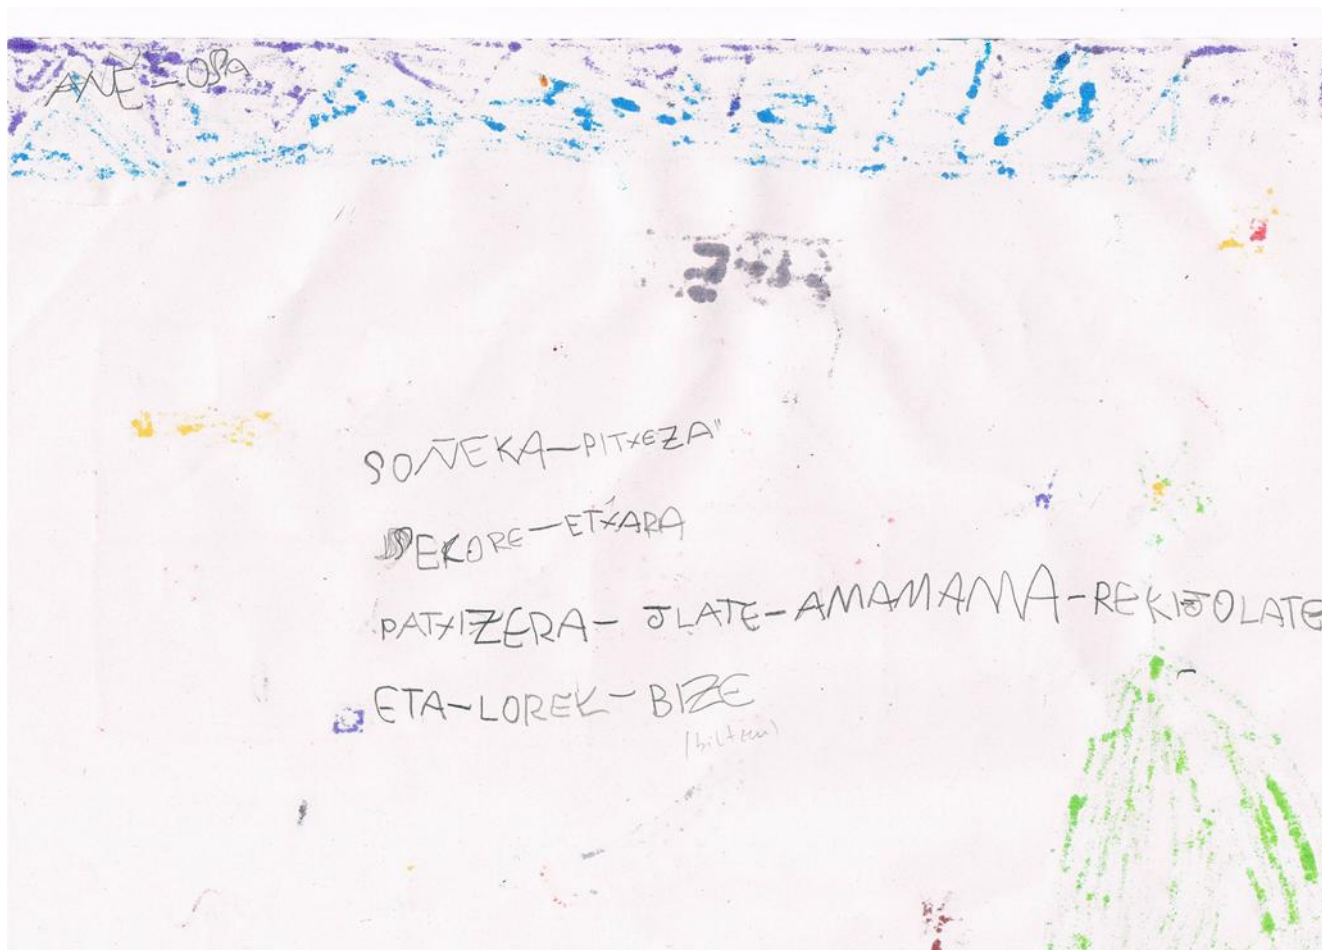 ANE-OSA
SOÑEKA-PITXEZA"
DEKORE-ETXARA
PATXIZERA- JLATE-AMAMANA-REKIJOLATE
ETA-LOREK-BIZE
(biltzen)